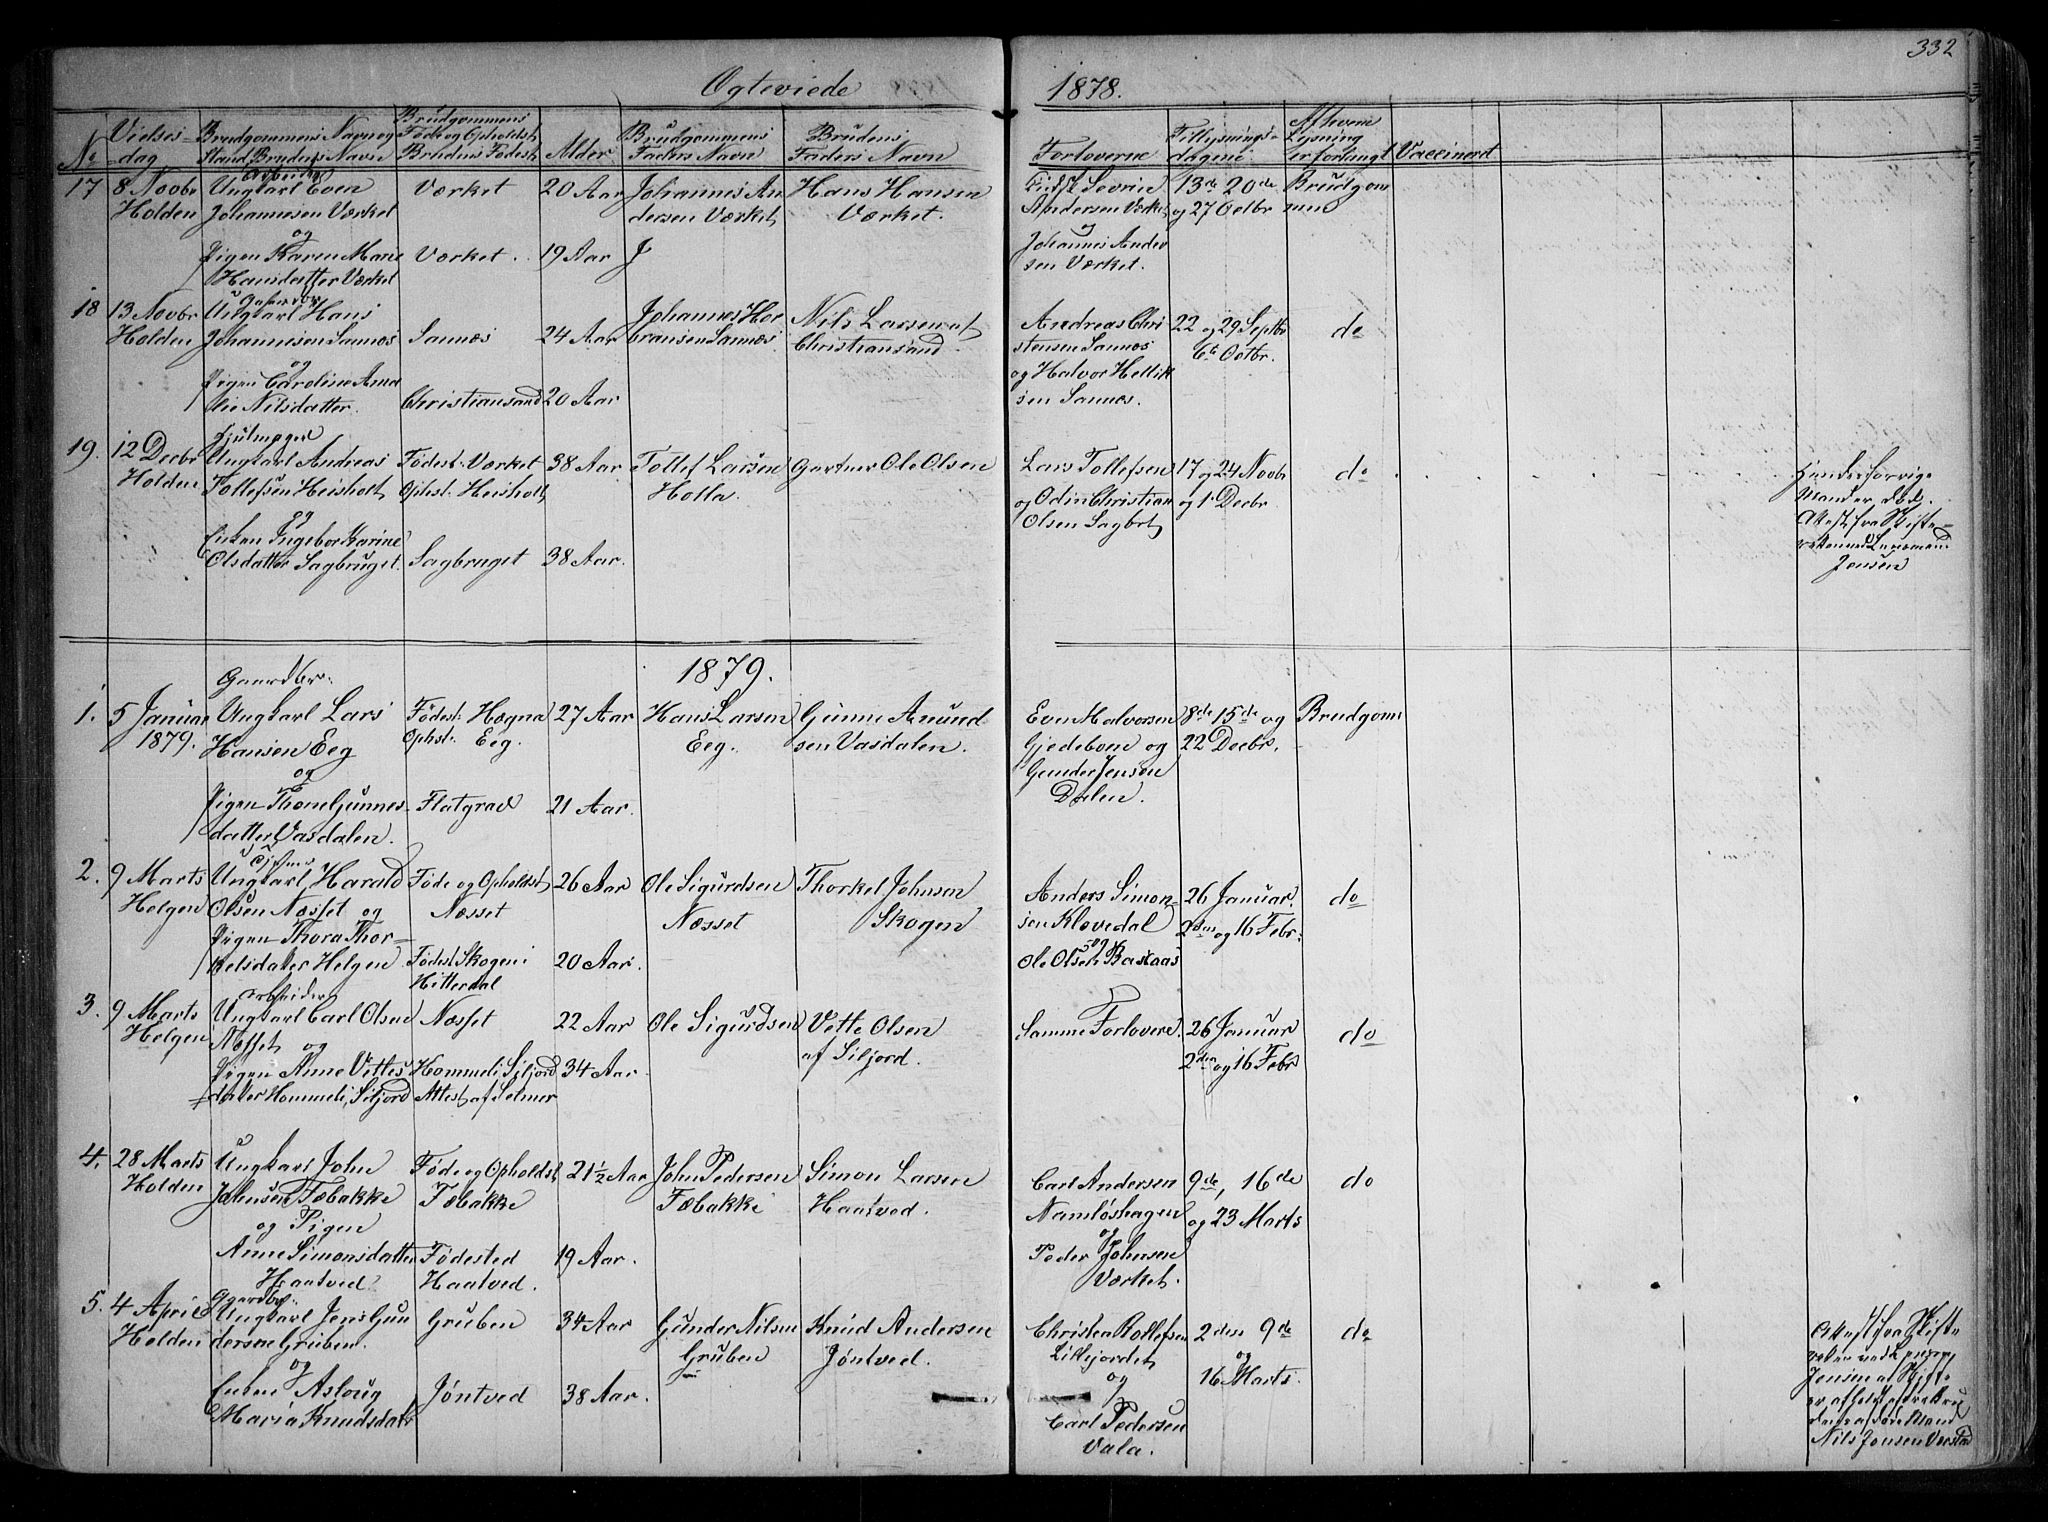 332
Ogteviede 1878.
No
Vielses-
dag
Brudgommens Navn og
Stand Brudens Navn
Brudgommens
Føde og Opholdst.
Brudens Fødest.
Alder
Brudgommens
Faders Navn
Brudens
Faders Navn
Forloverne
Tillysnings-
dagene
Af hvem
Lysning
er forlangt
Vaccineret
17 8 Novbr
Holden
Arbeider
Ungkarl Even
Johannesen Værket
og
Pigen Karen Marie
Hansdatter Værket
Værket
Værket.
20 Aar
19 Aar
Johannes An
dersen Værket
J
Hans Hansen
Værket.
Sevrin
Andersen Værket
og
Johannes Ander
sen Værket.
13de 20de
og 27 Octbr
Brudgom
men
18 13 Novbr
Holden
Ungkarl Hans
Johannesen Sannes
og
Pigen Caroline Ama
lie Nilsdatter.
Sannes
Christiansand
24 Aar
20 Aar
Johannes Hal
vorsen Sannes
Nils Larsen af
Christiansand
Andreas Chri
stensen Sannes
og Halvor Hellik
sen Sannes.
22 og 29 Septbr
6te Octbr.
do
19. 12 Decbr
Holden
Hjulmager
Ungkarl Andreas
Tollefsen Heisholt
og
Enken Ingebor Karine
Olsdatter Sagbruget.
Fødest. Værket
Ophst. Heisholt
Sagbruget
38 Aar
38 Aar.
Tollef Larsen
Holla.
Gartner Ole Olsen
Lars Tollefsen
og Odin Christian
Olsen Sagbrt
17 og 24 Novbr
og 1 Decbr
do
Hendes forrige
Mand er død.
Attest fra Skifte-
retten ved Lensmand
Jensen
1879.
1. 5 Januar
1879.
Gaardbr.
Ungkarl Lars
Hansen Eeg
og
Pigen Thone Gunnes-
datter Vasdalen.
Fødest. Høgna
Ophst. Eeg.
Flatgrav
27 Aar
21 Aar.
Hans Larsen
Eeg.
Gunne Anund-
sen Vasdalen.
Even Halvorsen
Gjedeboen og
Gunder Jensen
Dalen.
8de 15de og
22 Decbr.
Brudgom
2. 9 Marts
Helgen
Ungkarl Harald
Olsen Næsset og
Pigen Thora Thor-
kelsdater Helgen
Føde og Opholdst.
Næsset
Fødest Skogen i
Hitterdal
26 Aar
20 Aar.
Ole Sigurdsen
Næsset
Thorkel Johnsen
Skogen
Anders Simon-
sen Klovedal
og
Ole Olsen Bastaas
26 Januar.
2den og 16 Febr.
do
3. 9 Marts
Helgen
Arbeider
Ungkarl Carl Olsen
Næsset og
Pigen Anne Vettes
dater Hommeli, Siljord
Næsset
Hommeli Siljord
Attest af Selmer
22 Aar
34 Aar.
Ole Sigurdsen
Vette Olsen
af Siljord.
Samme Forlovere.
26 Januar
2den og 16 Febr
do
4. 28 Marts
Holden
Ungkarl John
Johnsen Fæbakke
og Pigen
Anne Simonsdatter
Haatved
Føde og Opholdst.
Fæbakke
Fødested
Haatved.
21½ Aar
19 Aar.
John Pedersen
Fæbakke
Simon Larsen
Haatved.
Carl Andersen
Namløshagen
og
Peder Johnsen
Værket.
9de, 16de
og 23 Marts
do
5. 4 April
Holden
Gaardbr.
Ungkarl Jens Gun
dersen Gruben.
og
Enken Aslaug
Maria Knudsdatr
Gruben
Jøntved
34 Aar
38 Aar.
Gunder Nilsen
Gruben
Knud Andersen
Jøntved.
Christen Rollefsen
Lillejordet
og
Carl Pedersen
Vala.
2den 9de
og
16 Marts.
do
Attest fra Skifte
retten ved
Jensen at Skifte
er afholdt efter Bru
dens afdøde Mand
Nils Jensen